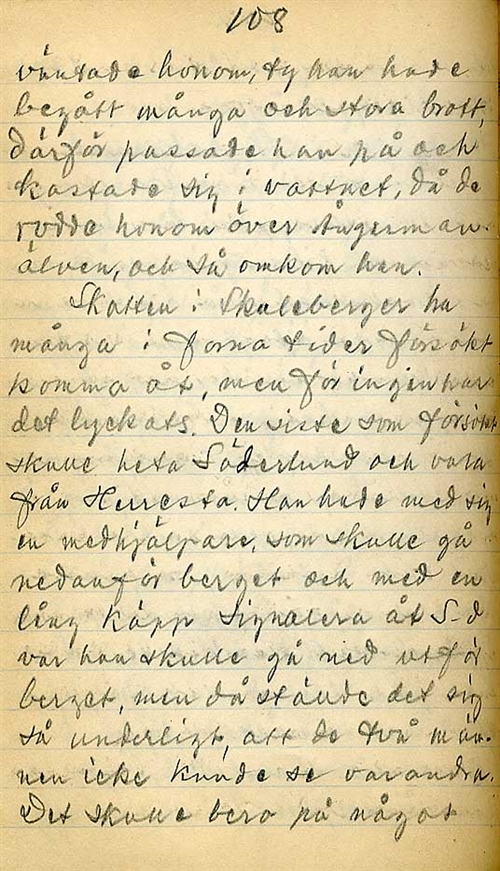 108
väntade honom, ty han hade
begått många och stora brott,
därför passade han på och
kastade sig i vattnet, då de
rodde honom över Ångerman-
älven, och så omkom han.
Skatten i Skuleberget ha
många i forna tider försökt
komma åt, men för ingen har
det lyckats. Den siste som försökt
skulle heta Söderlund och vara
från Herresta. Han hade med sig
en medhjälpare, som skulle gå
nedanför berget och med en
lång käpp signalera åt S-d
var han skulle gå ned utför
berget, men då stände det sig
så underligt, att de två män-
nen icke kunde se varandra.
Det skulle bero på något